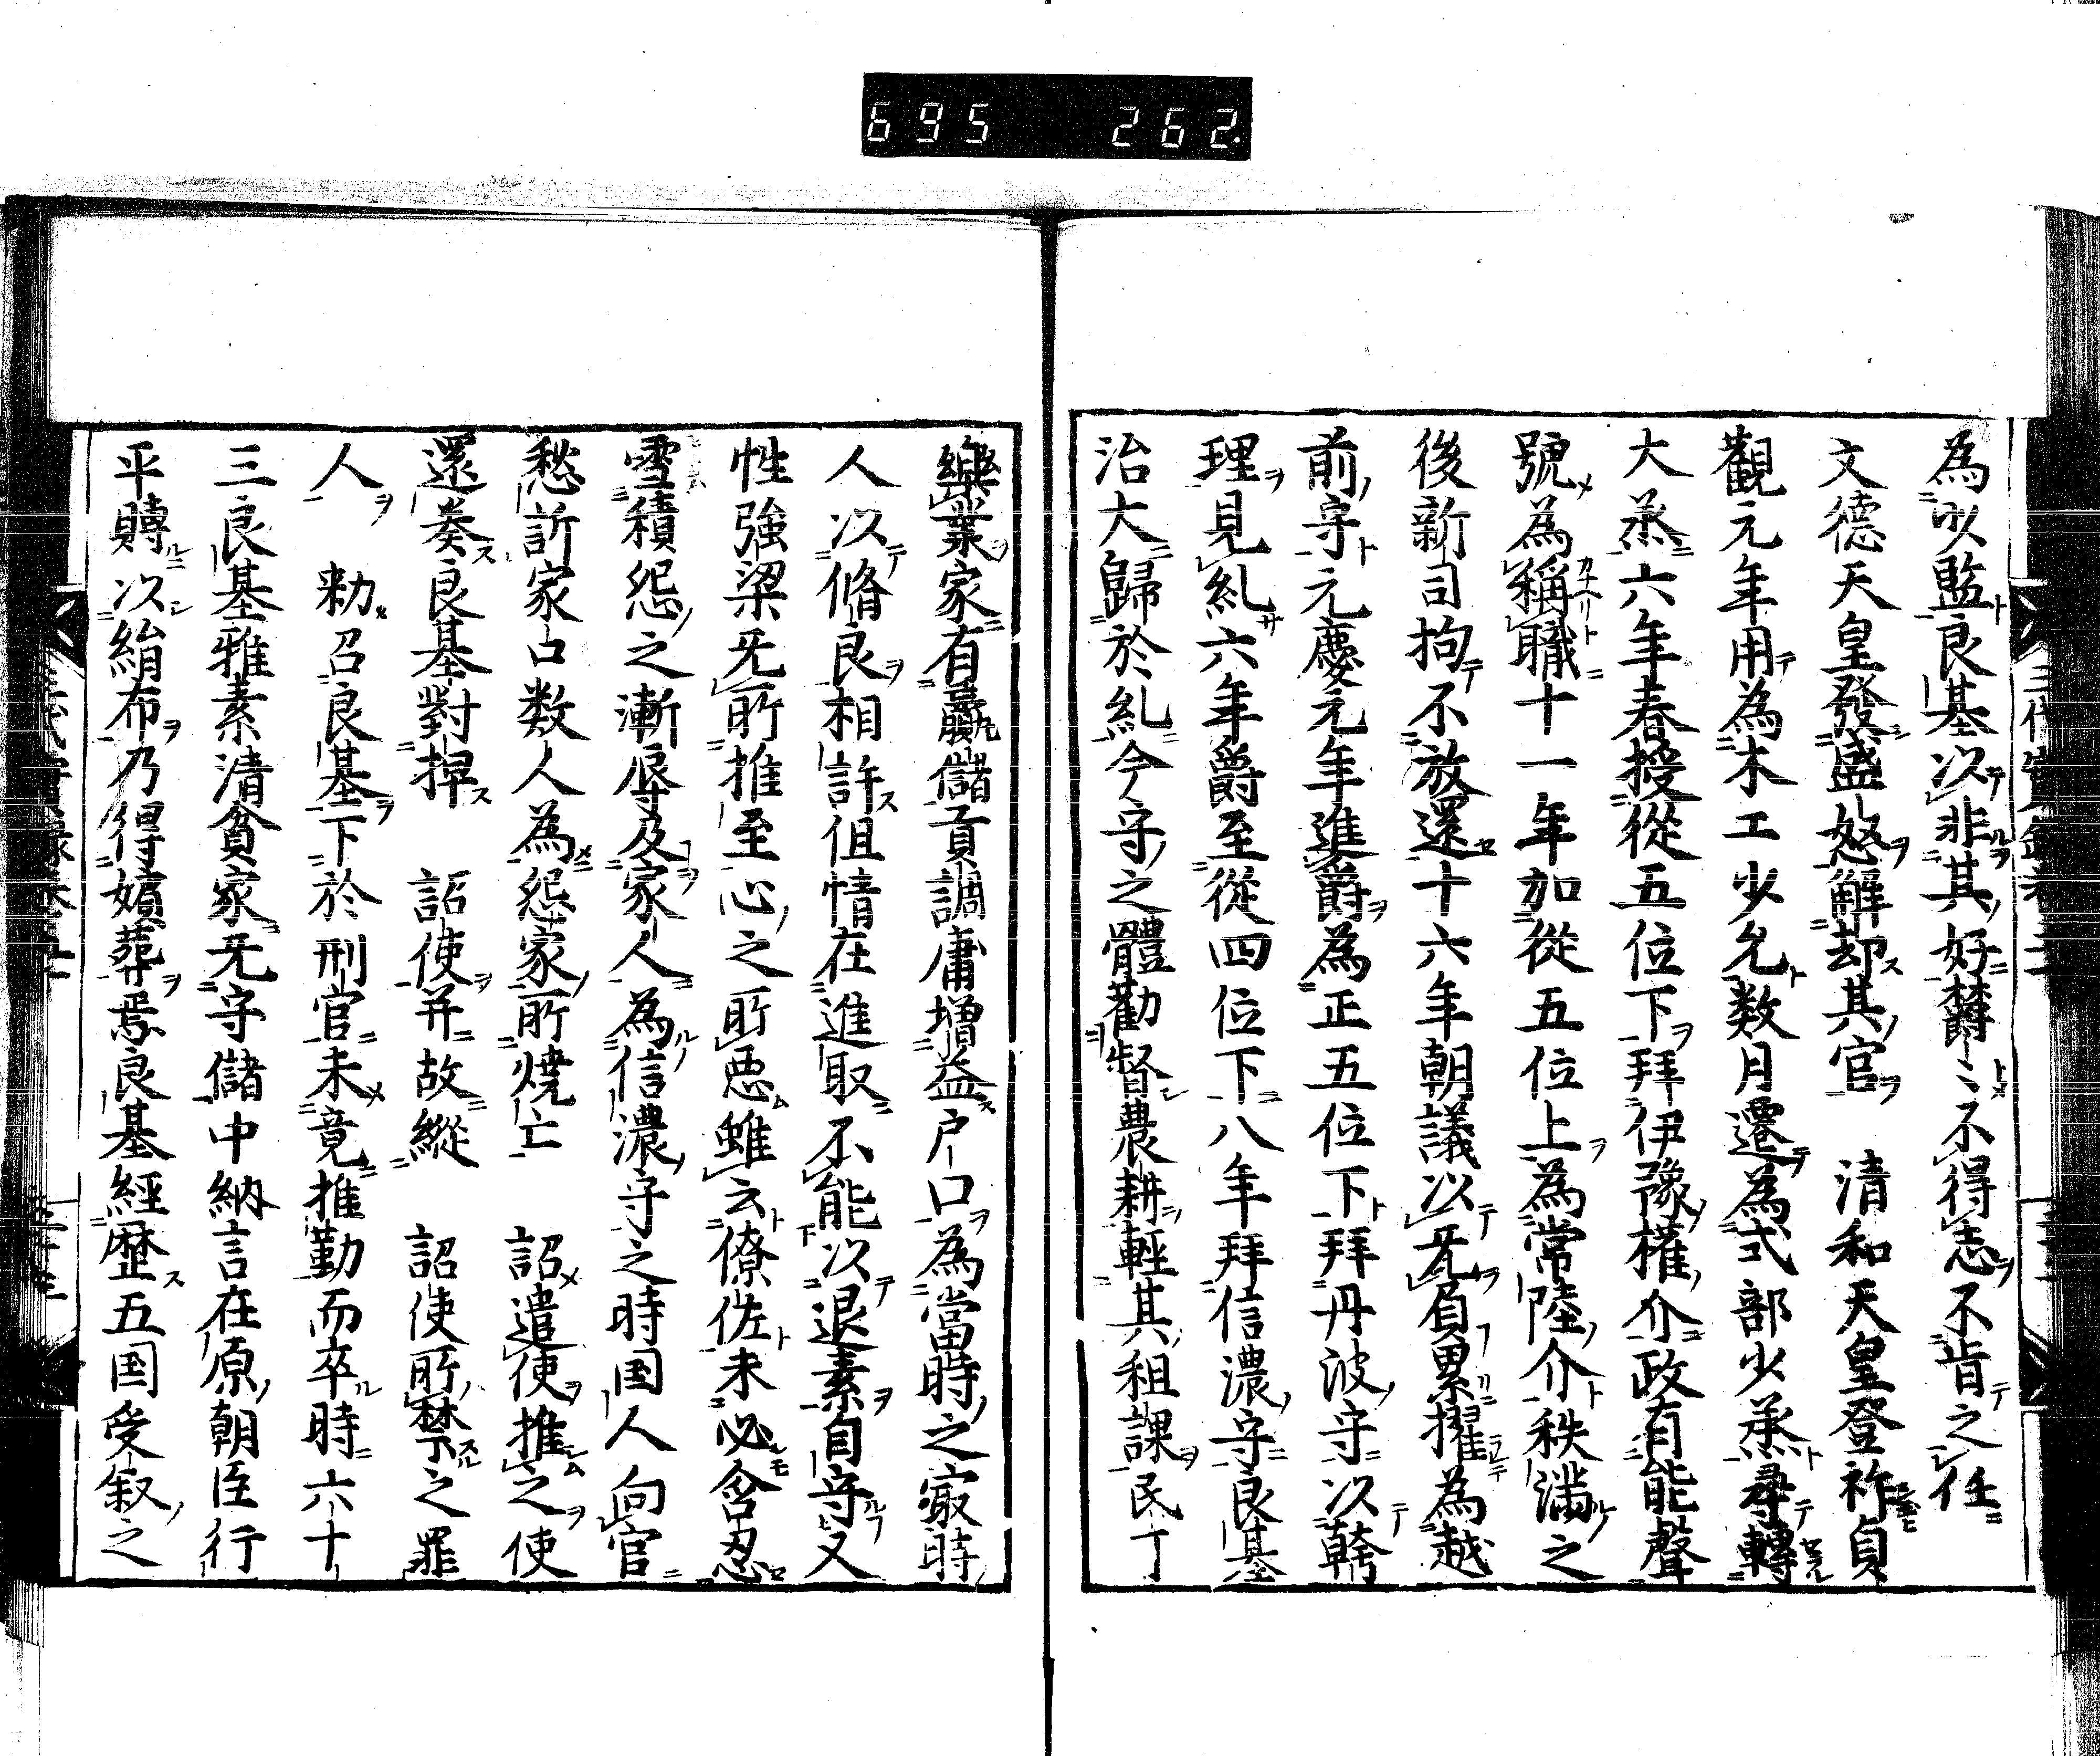 695 262.
為以監良基以非其好欝〻不得志不肯之任
文德天皇發盛怒解却其官 清和天皇登祚貞
觀元年用為木工少允数月遷為式部少丞尋轉
大丞六年春授從五位下拜伊豫權介政有能聲
號為稱職十一年加從五位上為常陸介秩滿之
後新司拘不放還十六年朝議以旡負累擢為越
前守元慶元年進爵為正五位下拜丹波守以
理見糺六年爵至從四位下八年拜信濃守良基
治大歸於糺今守之體勸督農耕輕其租課民丁
樂業家有贏儲貢調庸増益戸口為當時之寂時
人以脩良相許但情在進取不能以退素自守又
性強梁旡所推至心之所惡雖云僚佐未必含忍
雪積怨之漸辱及家人為信濃守之時国人向官
愁訴家口数人為怨家所燒亡 詔遣使推之使
還奏良基對捍 詔使并故縱 詔使所禁之罪
人 勑召良基下於刑官未竟推勤而卒時六十
三良基雅素清貧家旡守儲中納言在原朝臣行
平賻以絹布乃得殯葬焉良基經歴五国受叙之